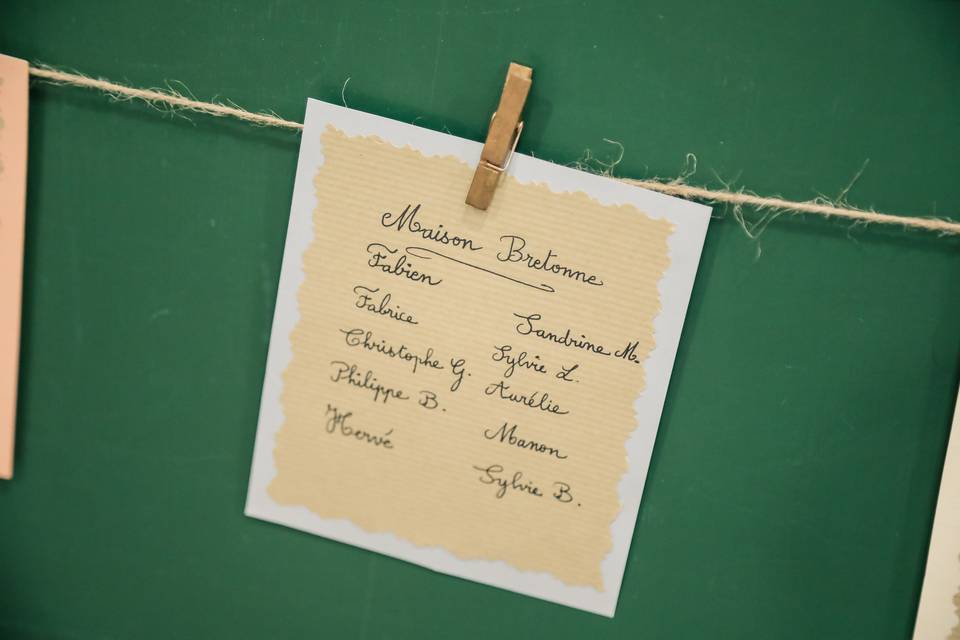 Maison Bretonne
Fabien
Fabrice
Christophe G.
Philippe B.
Hervé
Sandrine M.
Sylvie L.
Aurélie
Manon
Sylvie B.